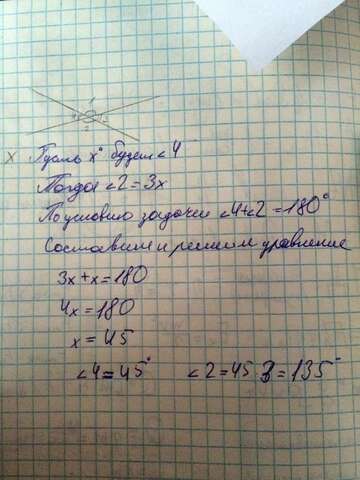 1
2
x Пусть x° будет <4
Тогда <2=3x
По условию задачи <4+<2=180°
Составим и решим уравнение
3x+x=180
4x=180
x=45
<4=45° <2=45·3=135°